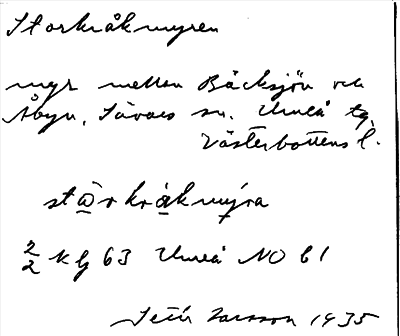 Storkråkmyren
myr mellan Bäcksjön och
Åbyn, Sävars sn. Umeå tg.
Västerbottens l.
stårkråkmýra
2/2 kg 63 Umeå NO 61
Larsson 1935